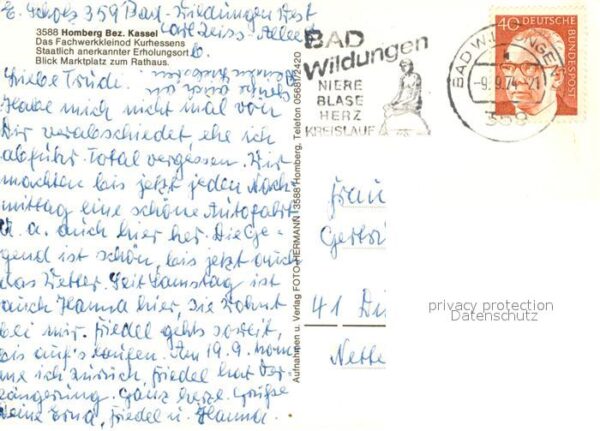 E. Scholz 359 Bad-Wildungen West
Carl Zeiss-Allee
6.
3588 Homberg Bez. Kassel
Das Fachwerkkleinod Kurhessens
Staatlich anerkannter Erholungsort
Blick Marktplatz zum Rathaus.
Liebe Trude!
Habe mich nicht mal von
Dir verabschiedet, ehe ich
abfuhr Total vergessen. Wir
machten bis jetzt jeden Nach-
mittag eine schöne Autofahrt
u. a. auch hier her. Die Ge-
gend ist schön, bis jetzt auch
das Wetter. Seit Samstag ist
auch Hanna hier, sie wohnt
bei mir. Friedel gehts soweit,
bis auf's laufen. Am 19.9. kom-
me ich zurück, Friedel hat Ver-
längerung. Ganz herzl. Grüße
Deine Erna, Friedel u. Hanna.
Aufnahmen u. Verlag FOTO-HERMANN 3588 Homberg, Telefon 05681/2420
BAD
Wildungen
NIERE
BLASE
HERZ
KREISLAUF
BAD WILDUNGEN
-9.9.74-
359
40
DEUTSCHE
BUNDESPOST
Frau
41
privacy protection
Datenschutz